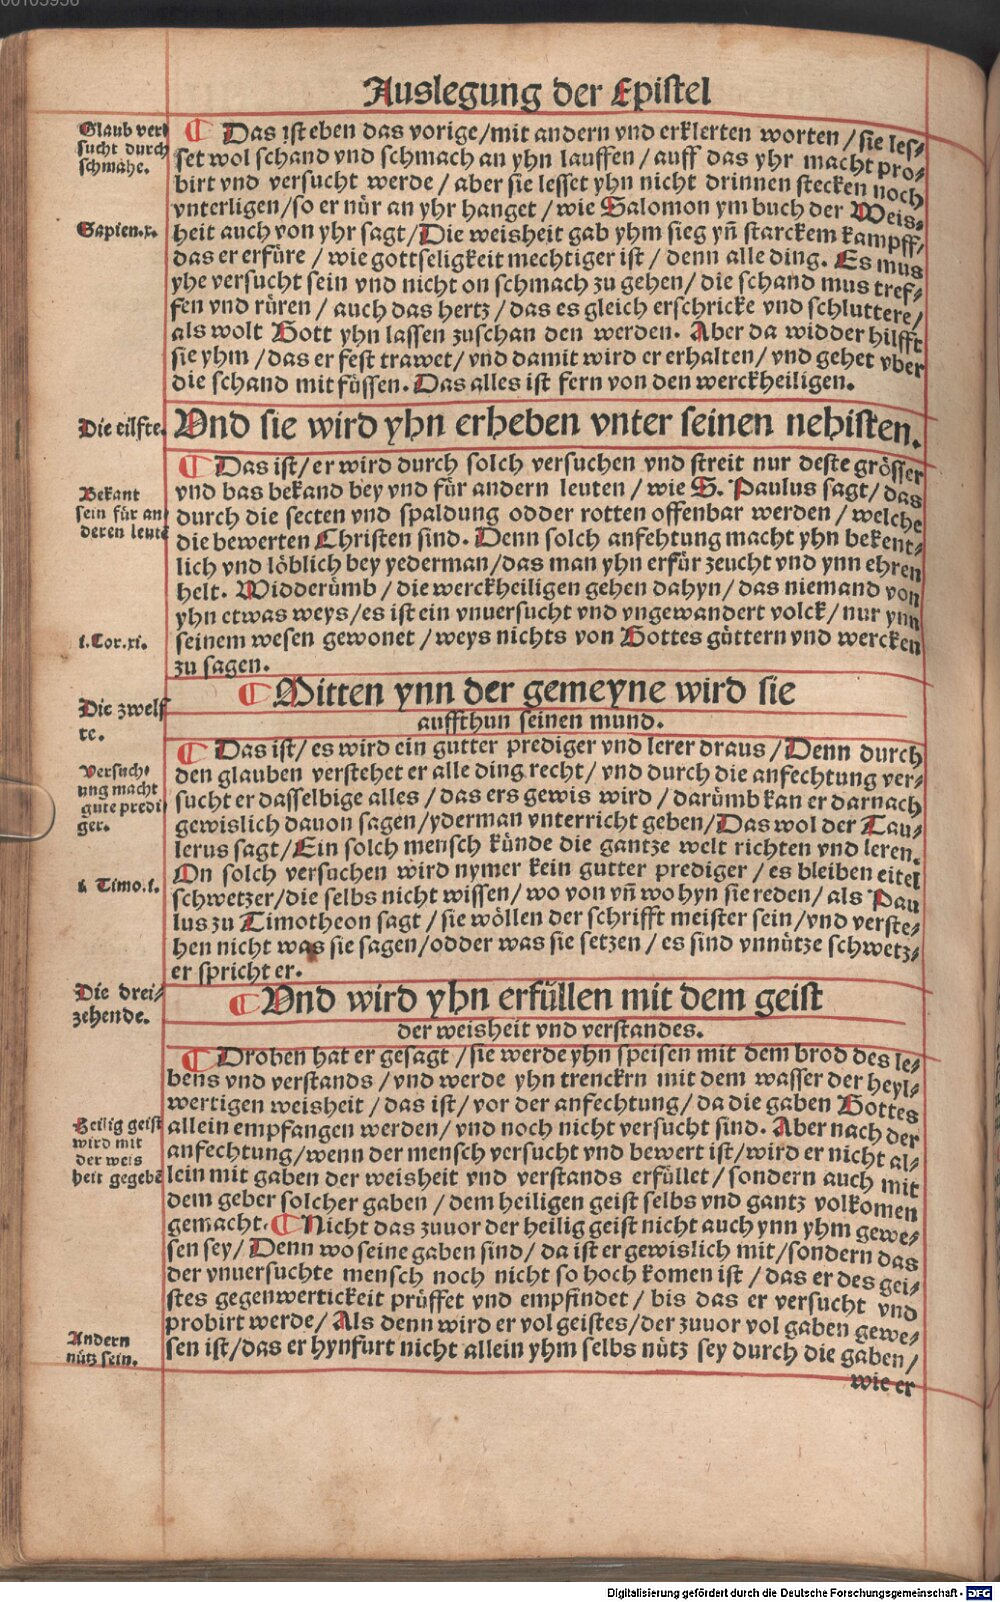 Auslegung der Epistel
Glaub ver⸗
sucht durch
schmahe.
¶ Das ist eben das vorige/mit andern vnd erklerten worten/sie les⸗
set wol schand vnd schmach an yhn lauffen/auff das yhr macht pro⸗
birt vnd versucht werde/aber sie lesset yhn nicht drinnen stecken noch
vnterligen/so er nür an yhr hanget/wie Salomon ym buch der Weis⸗
Sapien.x.
heit auch von yhr sagt/Die weisheit gab yhm sieg yñ starckem kampff/
das er erfüre/wie gottseligkeit mechtiger ist/denn alle ding. Es mus
yhe versucht sein vnd nicht on schmach zu gehen/die schand mus tref⸗
fen vnd rüren/auch das hertz/das es gleich erschricke vnd schluttere/
als wolt Gott yhn lassen zuschan den werden. Aber da widder hilfft
sie yhm/das er fest trawet/vnd damit wird er erhalten/vnd gehet vber
die schand mit füssen. Das alles ist fern von den werckheiligen.
Die eilfte.
Vnd sie wird yhn erheben vnter seinen nehisten.
¶ Das ist/er wird durch solch versuchen vnd streit nur deste grösser
Bekant
sein für an
deren leutē
vnd bas bekand bey vnd für andern leuten/wie S. Paulus sagt/das
durch die secten vnd spaldung odder rotten offenbar werden/welche
die bewerten Christen sind. Denn solch anfehtung macht yhn bekent⸗
lich vnd löblich bey yederman/das man yhn erfür zeucht vnd ynn ehren
helt. Widderümb/die werckheiligen gehen dahyn/das niemand von
yhn etwas weys/es ist ein vnuersucht vnd vngewandert volck/nur ynn
1.Cor.xi.
seinem wesen gewonet/weys nichts von Gottes güttern vnd wercken
zu sagen.
Die zwelf
te.
¶ Mitten ynn der gemeyne wird sie
auffthun seinen mund.
¶ Das ist/es wird ein gutter prediger vnd lerer draus/Denn durch
Versuch⸗
ung macht
gute predi
ger.
den glauben verstehet er alle ding recht/vnd durch die anfechtung ver⸗
sucht er dasselbige alles/das ers gewis wird/darümb kan er darnach
gewislich dauon sagen/yderman vnterricht geben/Das wol der Tau⸗
lerus sagt/Ein solch mensch künde die gantze welt richten vnd leren.
On solch versuchen wird nymer kein gutter prediger/es bleiben eitel
1. Timo.1.
schwetzer/die selbs nicht wissen/wo von vñ wo hyn sie reden/als Pau
lus zu Timotheon sagt/sie wöllen der schrifft meister sein/vnd verste⸗
hen nicht was sie sagen/odder was sie setzen/es sind vnnütze schwetz⸗
er spricht er.
Die drei⸗
zehende.
¶ Vnd wird yhn erfüllen mit dem geist
der weisheit vnd verstandes.
¶ Droben hat er gesagt/sie werde yhn speisen mit dem brod des le⸗
bens vnd verstands/vnd werde yhn trenckrn mit dem wasser der heyl⸗
wertigen weisheit/das ist/vor der anfechtung/da die gaben Gottes
Heilig geist
wird mit
der weis
heit gegebē
allein empfangen werden/vnd noch nicht versucht sind. Aber nach der
anfechtung/wenn der mensch versucht vnd bewert ist/wird er nicht al⸗
lein mit gaben der weisheit vnd verstands erfüllet/sondern auch mit
dem geber solcher gaben/dem heiligen geist selbs vnd gantz volkomen
gemacht. ¶ Nicht das zuuor der heilig geist nicht auch ynn yhm gewe⸗
sen sey/Denn wo seine gaben sind/da ist er gewislich mit/sondern das
der vnuersuchte mensch noch nicht so hoch komen ist/das er des gei⸗
stes gegenwertickeit prüffet vnd empfindet/bis das er versucht vnd
probirt werde/Als denn wird er vol geistes/der zuuor vol gaben gewe⸗
Andern
nütz sein.
sen ist/das er hynfurt nicht allein yhm selbs nütz sey durch die gaben/
wie er
Digitalisierung gefördert durch die Deutsche Forschungsgemeinschaft - DFG